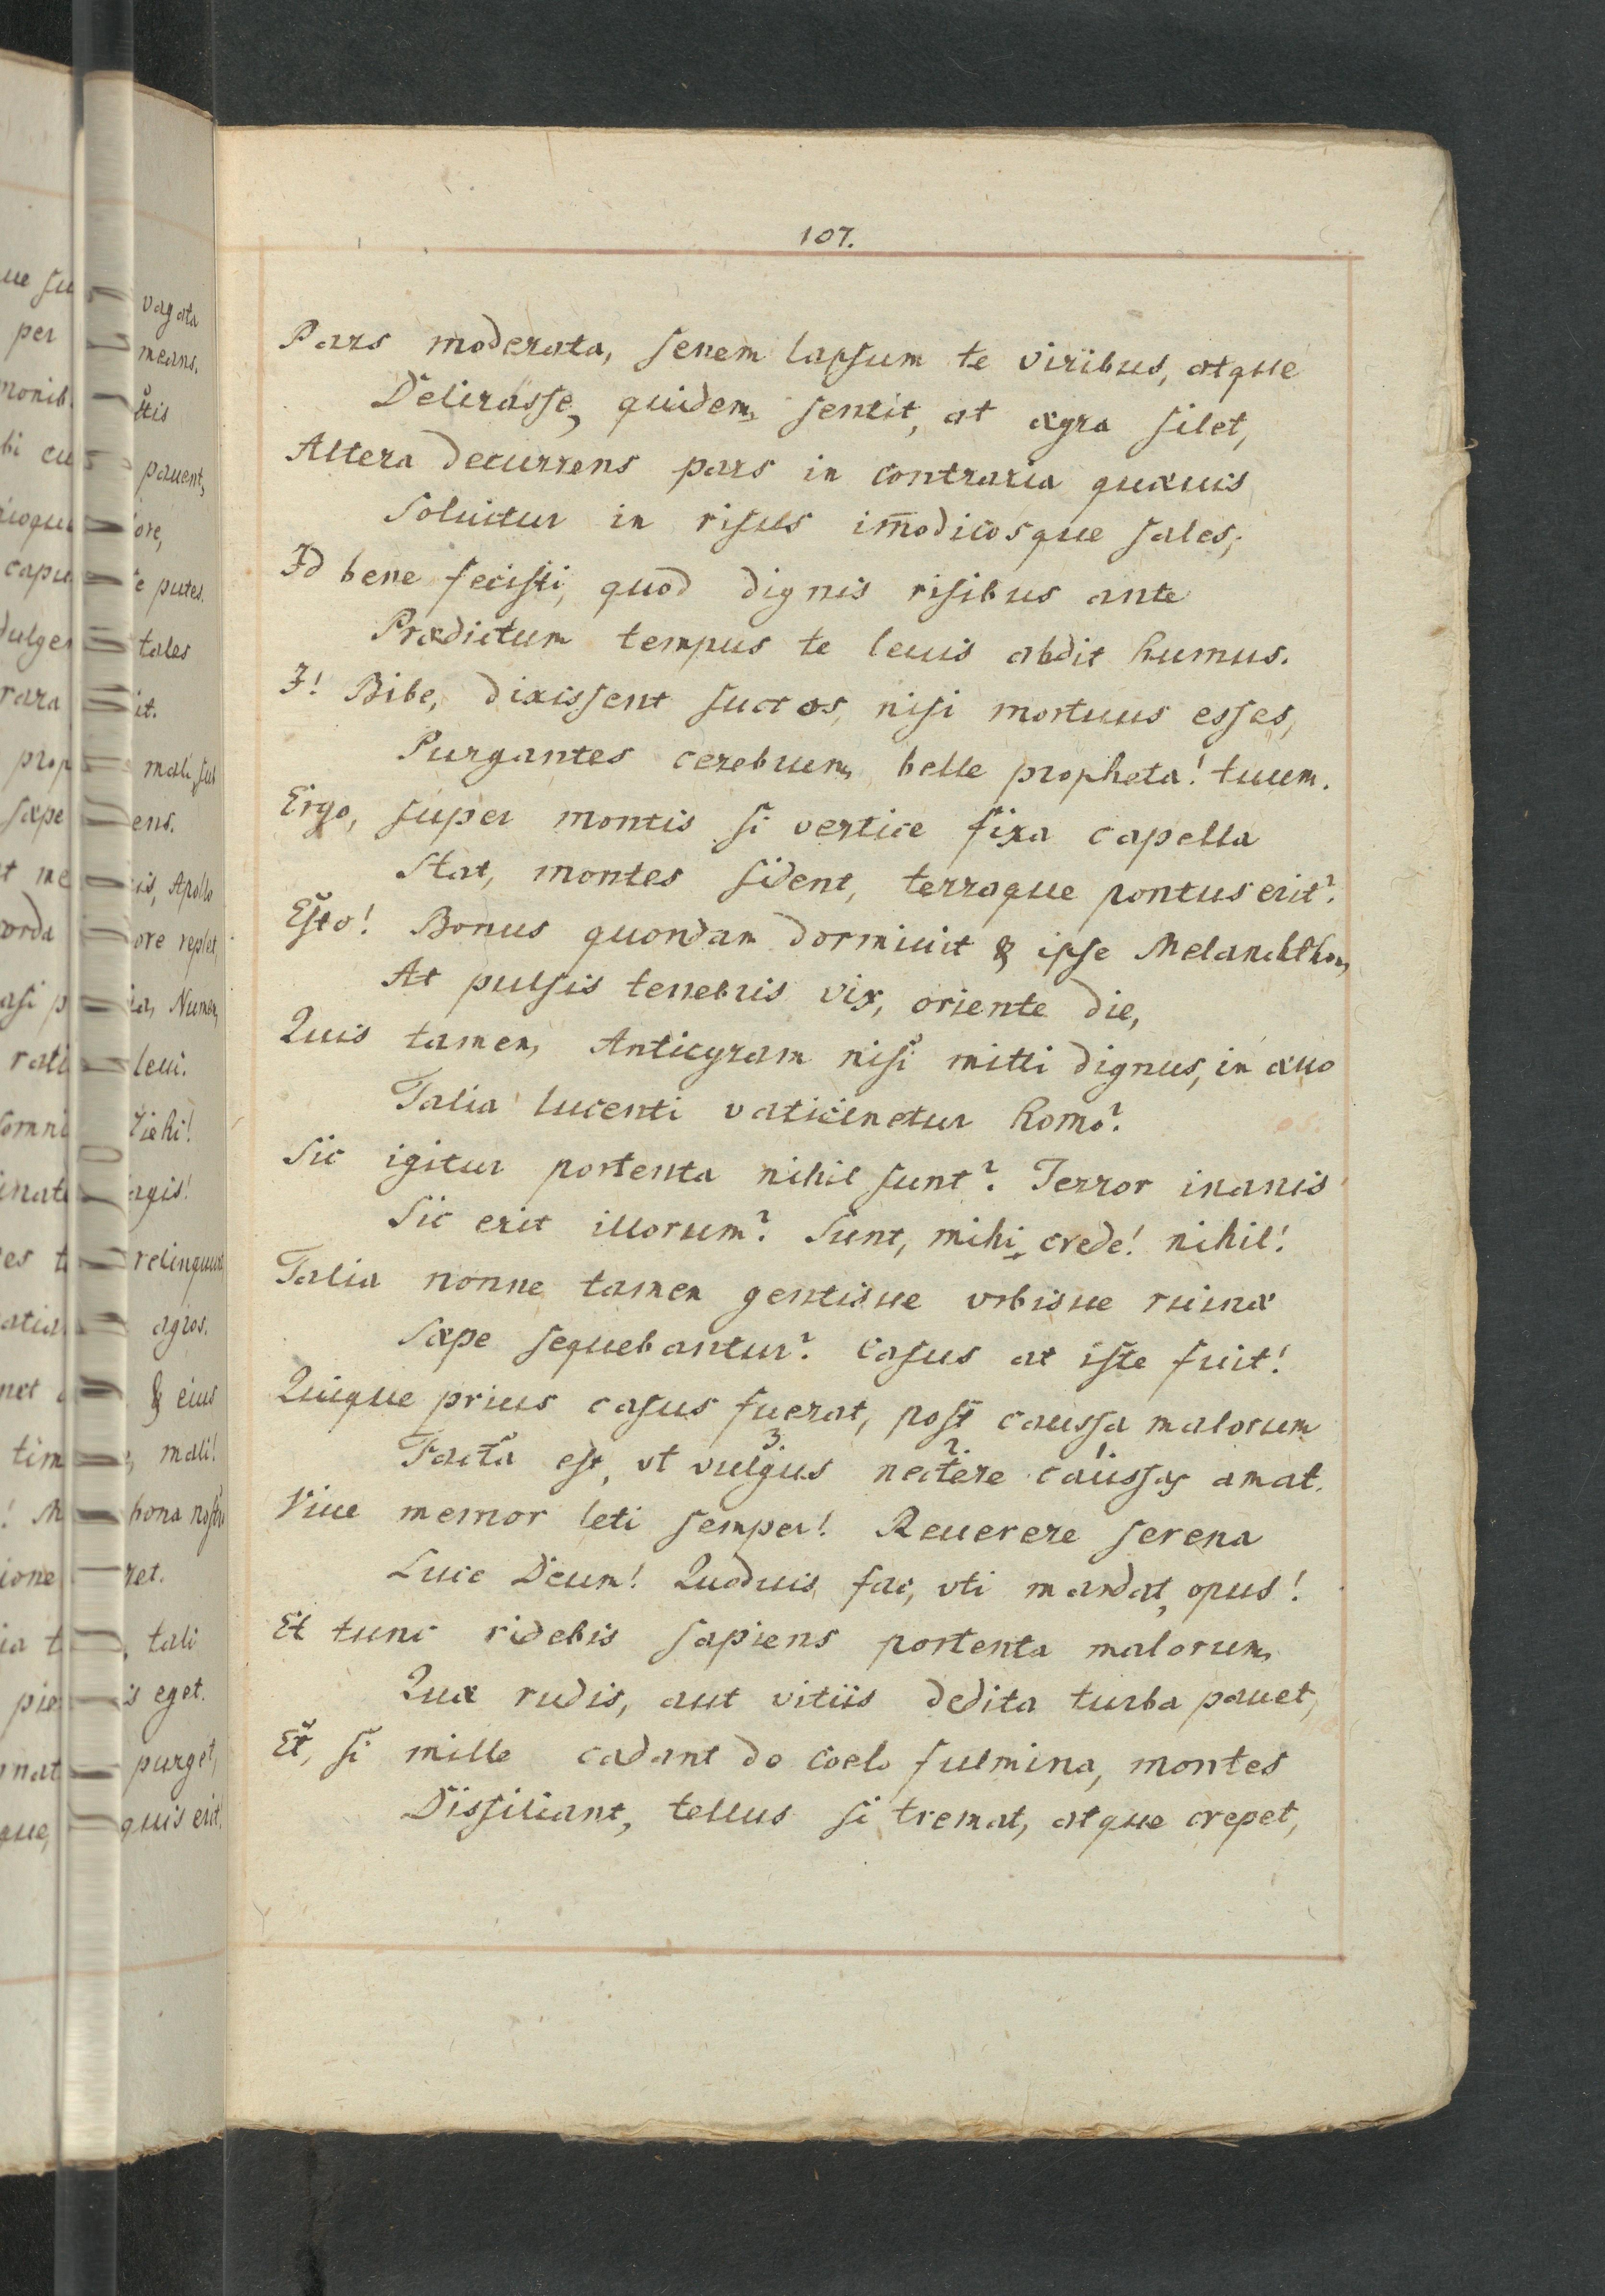 107.
Pars moderata, senem lapsum te viribus, atque
Delirasse, quidem, sentit, at ægra silet,
Altera decurrens pars in contraria quæuis
Soluitur in risus im̄odicosque sales;
Id bene fecisti, quod dignis risibus ante
Prædictum tempus te leuis abdit humus.
I! Bibe, dixissent suctos, nisi mortuus esses,
Purgantes cerebrum, belle propheta! tuum.
Ergo, super montis si vertice fixa capella
Stat, montes sident, terraque pontus erit?
Esto! Bonus quondam dormiuit & ipse Melanchthon,
At pulsis tenebris vix, oriente die,
Quis tamen, Anticyram nisi mitti dignus, in æuo
Talia lucenti vaticinetur homo?
Sic igitur portenta nihil sunt? Terror inanis
Sic erit illorum? Sunt, mihi crede! nihil!
Talia nonne tamen gentisue vrbisue ruinæ
Sæpe sequebantur? Casus at iste fuit!
Quique prius casus fuerat, post caussa malorum
Facta est, vt vulgus nectere caussas amat.
Viue memor leti semper! Reuerere serena
Luce Deum! Quoduis fac, vti mandat, opus!
Et tunc ridebis sapiens portenta malorum,
Quæ rudis, aut vitiis dedita turba pauet,
Et, si mille cadant de coelo fulmina, montes
Dissiliant, tellus si tremat, atque crepet,